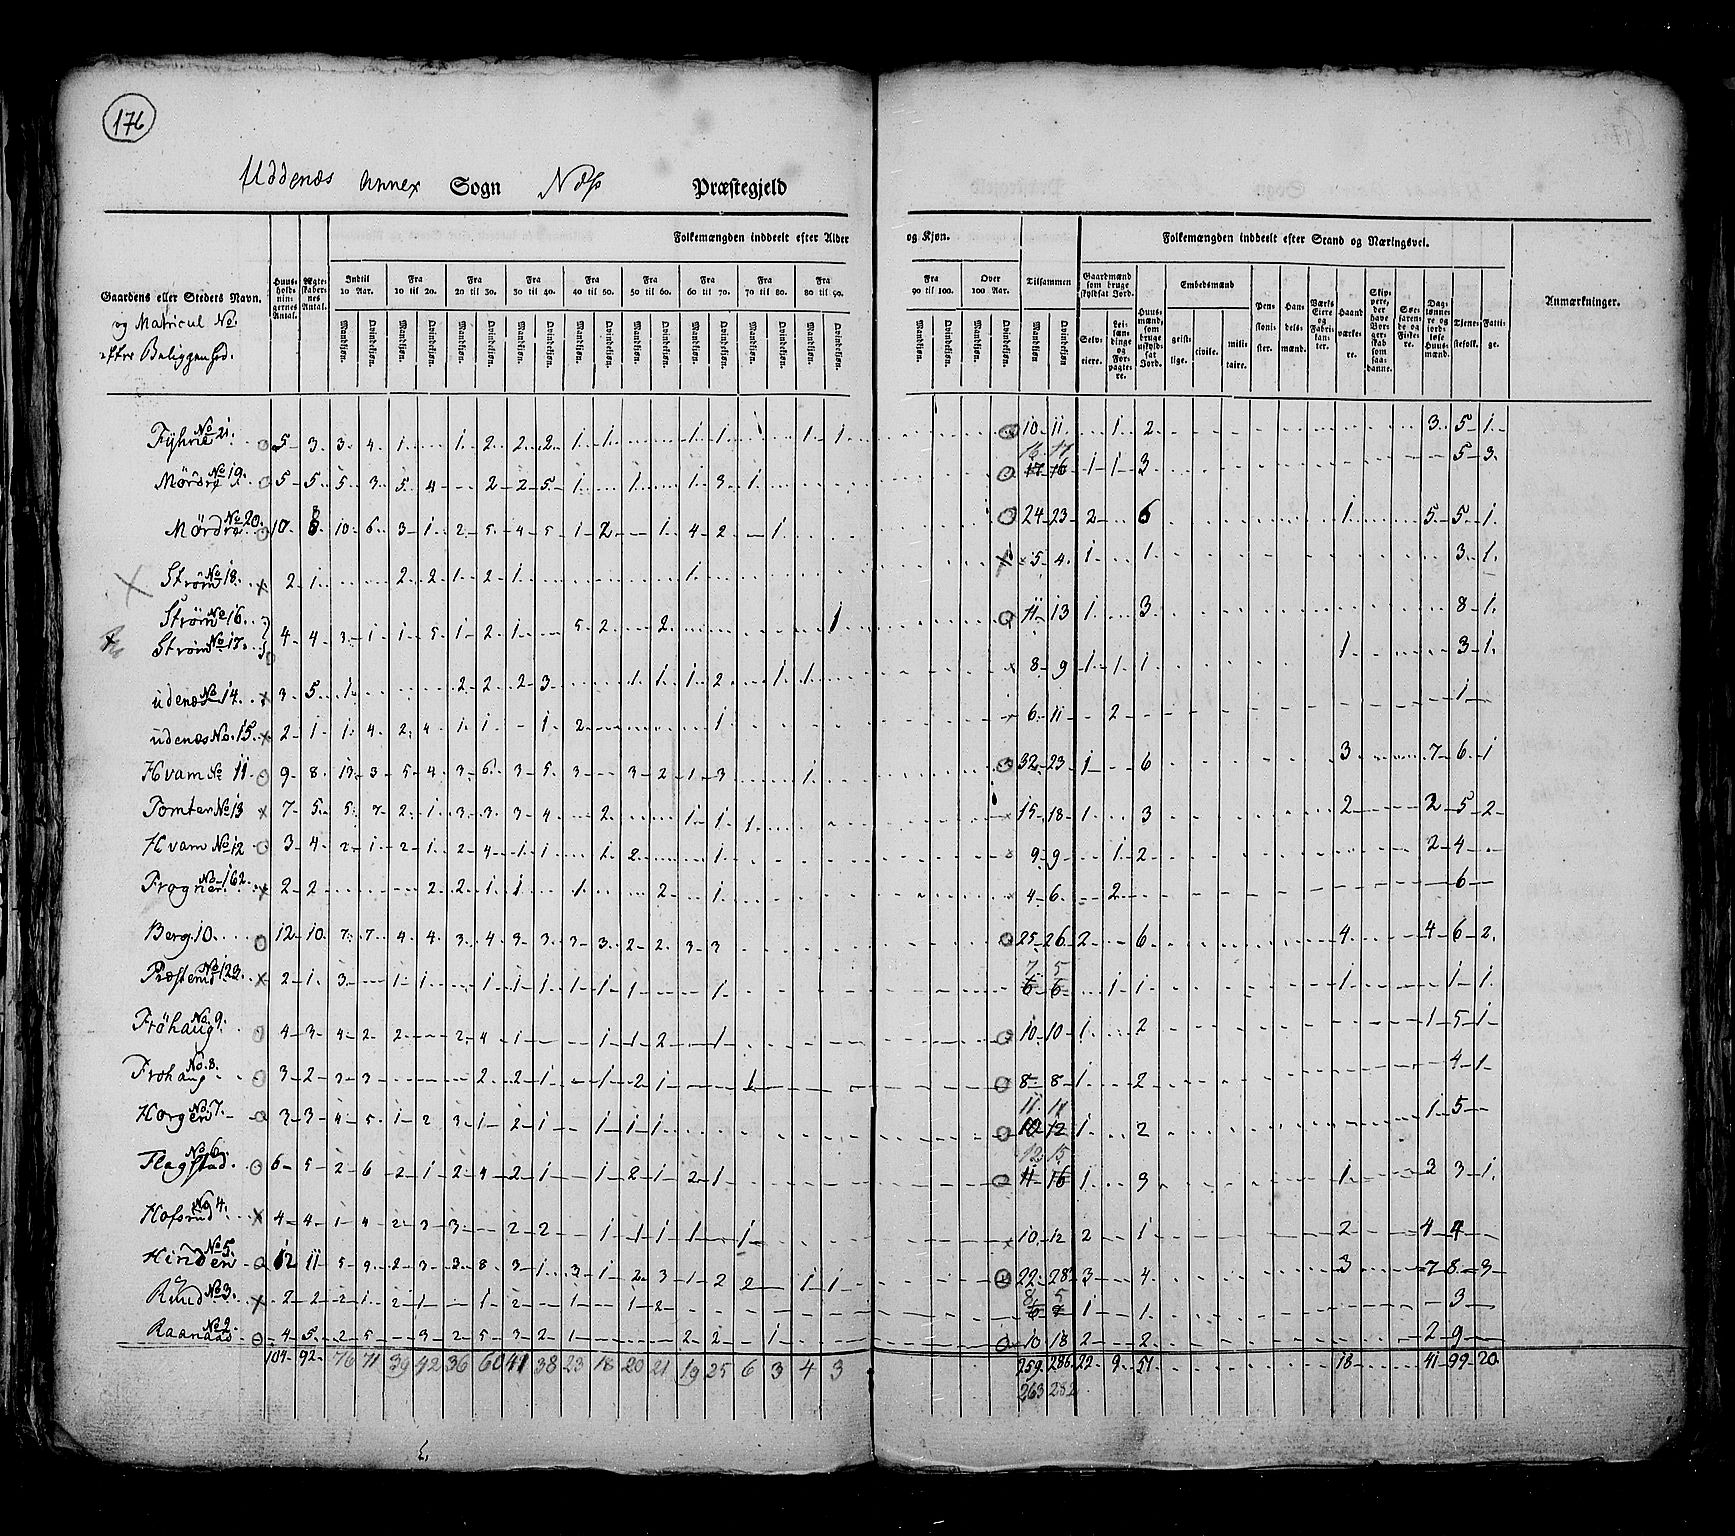 176
Uddenæs Annex Sogn Næs Præstegjeld
Folkemængden inddeelt efter Alder og Kjøn. Folkemængden inddeelt efter Stand og Næringsvei.
Gaardens eller Stedets Navn.
og Matricul No.
efter Beliggenhed.
Huusholdningernes Antal. Ægteskabernes Antal. Indtil 10 Aar. Fra 10 til 20. Fra 20 til 30. Fra 30 til 40. Fra 40 til 50. Fra 50 til 60. Fra 60 til 70. Fra 70 til 80. Fra 80 til 90. Fra 90 til 100. Over 100 Aar. Tilsammen
Mandkjøn. Qvindekjøn.
Gaardmænd som bruge skyldsat Jord. Selveiere. Leilændinge og Forpagtere. Huusmænd, som bruge uskyldsat Jord. Embedsmænd geistlige. civile. militaire. Pensionister. Handelsmænd. Værks Eiere og Fabrikanter. Haandværkere. Skippere, der have Borgerskab som saadanne. Søefarende og Fiskere. Dagslønnere og jordløse Huusmænd. Tjenestefolk. Fattige.
Anmærkninger.
Fyhrie No 21. 5 3 3 4 1 1 2 2 2 1 1 1 1 1 1 10 11 1 2 3 5 1
16 17
Mördre No 19. 5 5 5 3 5 4 2 2 5 1 1 1 3 1 17 16 1 1 3 5 3
Mördre No 20. 10 8 10 6 3 1 2 5 4 5 1 2 1 4 2 1 24 23 2 6 1 5 5 1
Ström No 18. 2 1 2 2 1 2 1 1 5 4 1 1 3 1
Ström No 16.
Ström No 17. 4 4 3 1 1 5 1 2 1 5 2 2 1 11 13 1 3 8 1
udenæs No 14. 3 5 1 2 2 2 3 1 1 1 2 1 1 8 9 1 1 1 1 3 1
udenæs No. 15. 2 1 1 4 2 4 1 1 1 2 1 6 11 2 1
Hvam No 11 9 8 13 3 5 4 3 6 3 5 3 3 2 1 3 1 32 23 1 6 3 7 6 1
Tomter No 13 7 5 5 7 2 1 3 3 3 4 2 1 1 1 15 18 1 3 2 2 5 2
Hvam No 12 3 4 2 1 2 1 2 4 1 1 1 2 1 9 9 1 2 2 4
Frogner No 162. 2 2 2 2 1 1 1 2 1 4 6 2 6
Berg 10. 12 10 7 7 4 4 3 4 3 3 3 3 2 2 3 3 25 26 2 6 4 4 6 2
7 5
Præsterud No 123. 2 1 3 1 1 1 1 1 1 1 1 1 6 6 1 1 1 1 1
Fröhaug No. 9. 4 3 4 2 2 2 4 1 1 1 2 1 10 10 1 2 1 5 1
Frohaug No. 8. 3 2 3 3 2 2 1 1 2 1 1 8 8 1 2 4 1
11 11
Horgen No 7. 3 3 4 5 1 2 3 1 2 1 1 1 1 12 12 1 2 1 5
12 15
Flagstad No 6. 6 5 2 6 2 1 2 4 2 1 1 2 1 2 1 11 16 1 3 1 3 3 1
Hofsrud No 4. 4 4 1 4 2 3 3 2 2 1 1 1 1 1 10 12 2 1 2 4 4
Hinden No 5. 12 11 5 9 2 3 3 8 3 1 3 1 2 3 1 2 2 1 1 22 28 3 4 3 7 8 3
8 5
Rud No 3. 2 2 2 1 2 1 1 2 1 1 2 6 7 1 1 3
Raanaas No 2. 4 5 2 5 3 2 5 3 2 1 2 2 1 10 18 2 2 2 9
104 92 76 71 39 42 36 60 41 38 23 18 20 21 19 25 6 3 4 3 259 286 22 9 51 18 41 99 20
263 282